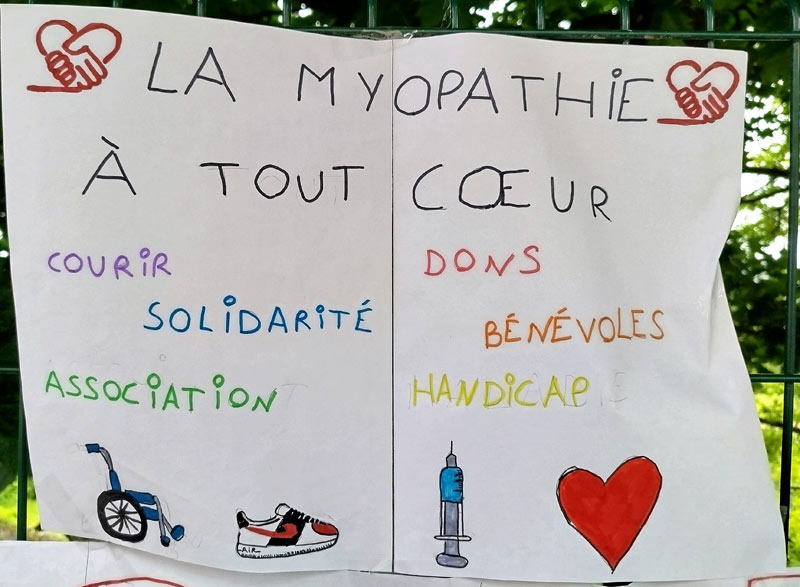 LA MYOPATHiE
À TOUT CŒUR
COURiR
DONS
SOLiDARiTÉ
BÉNÉVOLES
ASSOCiATiON
HANDiCAP
AIR